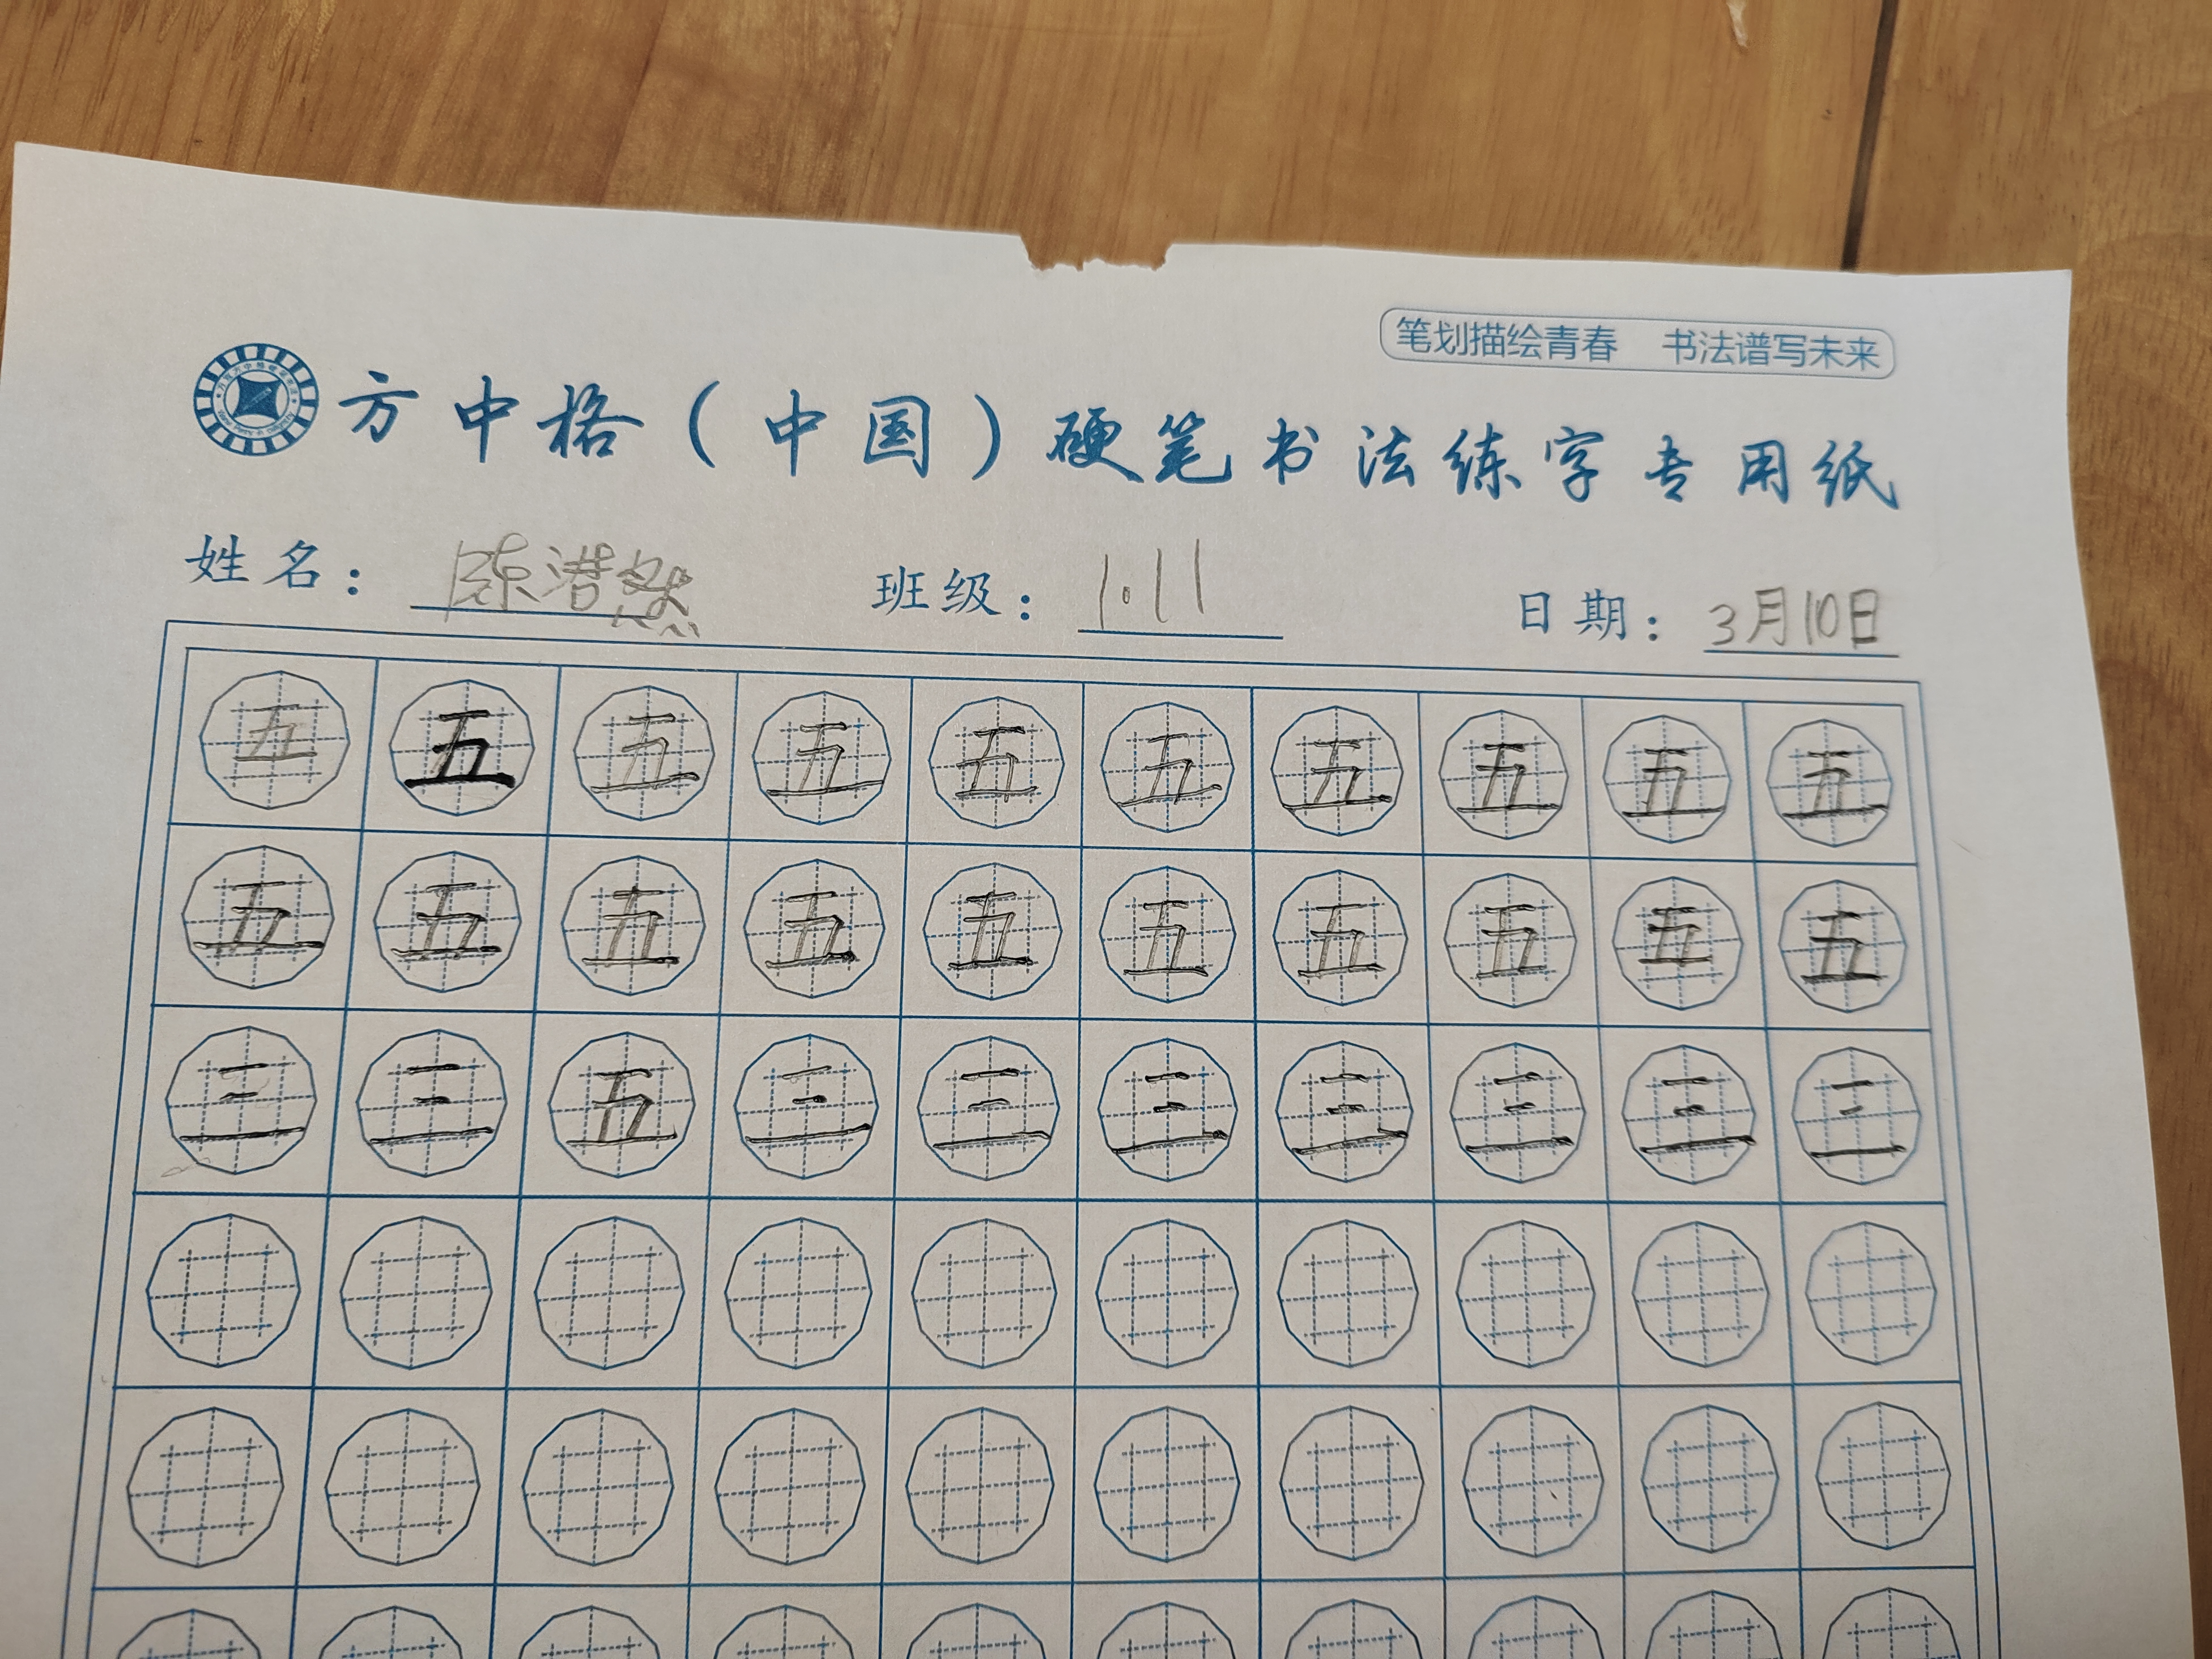 笔划描绘青春 书法谱写未来
方中格(中国)硬笔书法练字专用纸
姓名: 陈浩然 班级: 1.11 日期: 3月10日
五 五 五 五 五 五 五 五 五 五
五 五 五 五 五 五 五 五 五 五
三 三 五 三 三 三 三 三 三 三